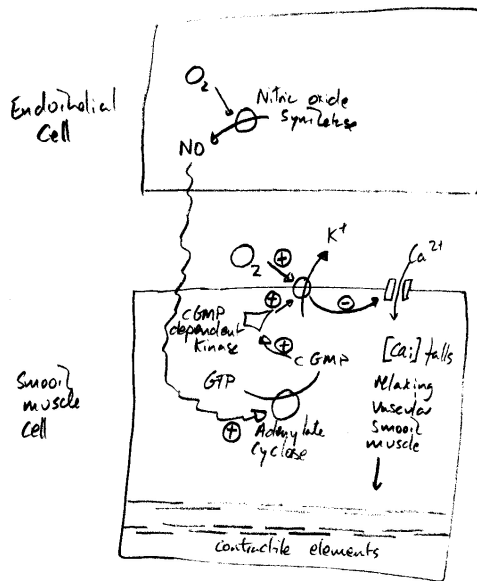 Endothelial
Cell
O2
Nitric oxide
Synthetase
NO
O2
+
K+
Ca2+
+
-
cGMP
dependent
Kinase
+
cGMP
GTP
+
Adenylate
Cyclase
[Cai] falls
relaxing
Vascular
Smooth
muscle
Smooth
muscle
Cell
contractile elements